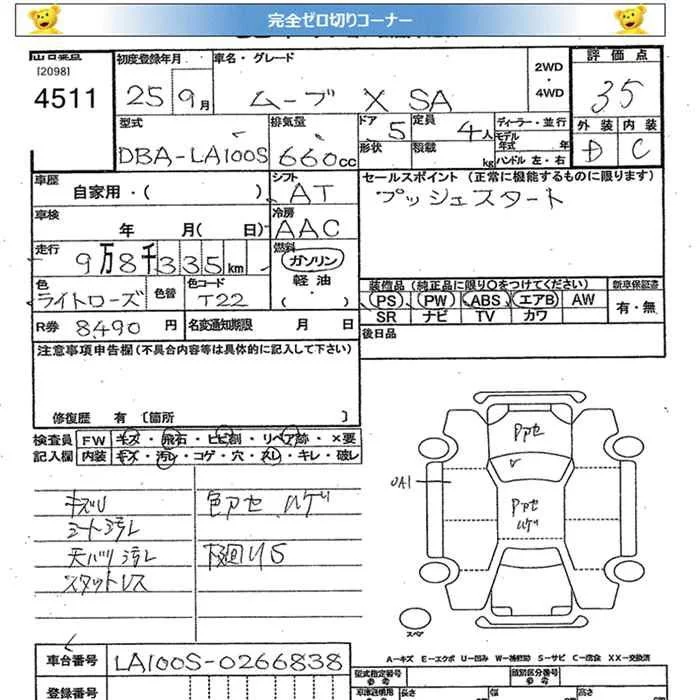 完全ゼロ切りコーナー
[2098]
4511
初度登録年月
25 9月
車名・グレード
ムーブ X SA
2WD
・
4WD
評価点
35
外装 内装
D C
型式
DBA-LA100S
排気量
660cc
ドア 5
形状
定員 4人
積載 kg
ディーラー・並行
モデル
年式 年
ハンドル 左・右
車歴
自家用・( )
シフト
AT
セールスポイント (正常に機能するものに限ります)
プッシュスタート
車検
年 月( 日)
冷房
AAC
走行
9万8千335km
燃料
ガソリン
軽油
・( )
色
ライトローズ
色替
色コード
T22
装備品 (純正品に限り○をつけてください)
(PS) (PW) (ABS) (エアB) AW
SR ナビ TV カワ
新車保証書
有・無
R券 8490円
名変通知期限 月 日
後日品
注意事項申告欄 (不具合内容等は具体的に記入して下さい)
修復歴 有 〔箇所 〕
検査員 FW キズ・飛石・ヒビ割・リペア跡・×要
記入欄 内装 キズ・汚レ・コゲ・穴・スレ・キレ・破レ
キズU
シート汚レ
天バリ汚レ
スタットレス
色アセ ハゲ
下廻りS
Pアセ
Pアセ
ハゲ
UA1
スペア
A-キズ E-エクボ U-凹み W-補修跡 S-サビ C-腐食 XX-交換済
車台番号
LA100S-0266838
型式指定番号
参考
類別区分番号
参考
登録番号
長さ
幅
高さ